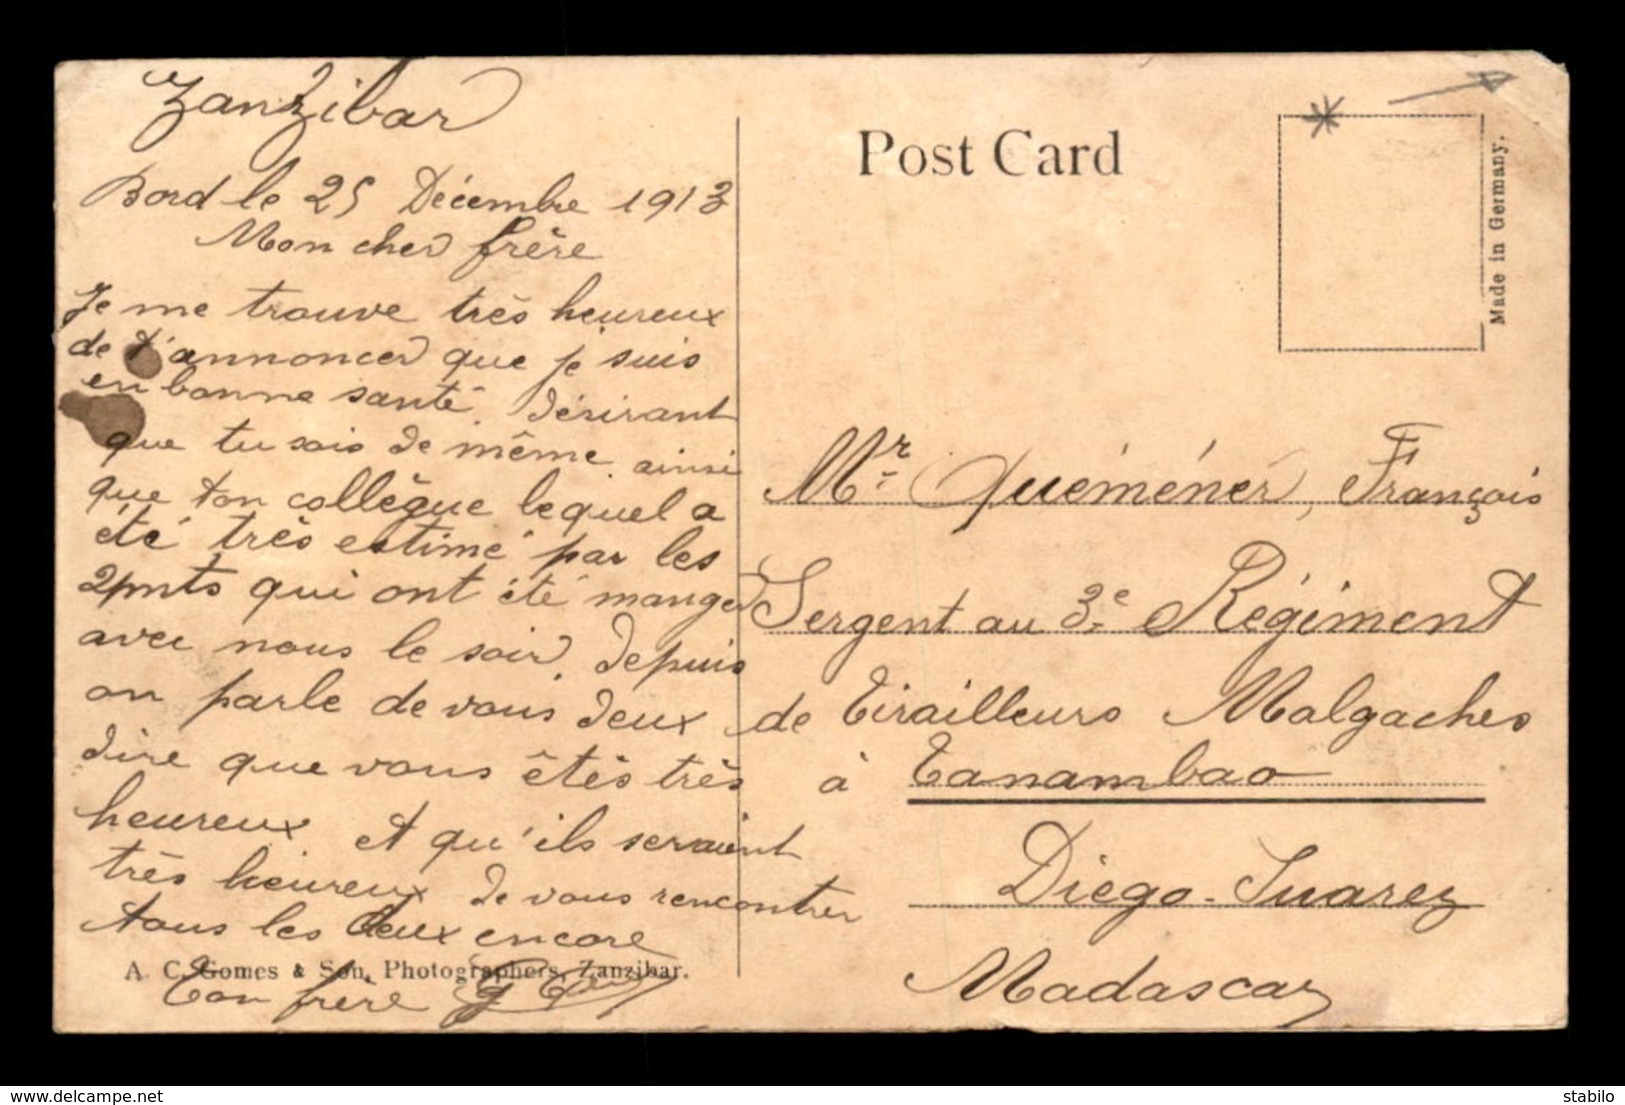 Zanzibar
Bord le 25 Décembre 1913
Mon cher frère
Je me trouve très heureux
de t'annoncer que je suis
en bonne santé. désirant
que tu sois de même ainsi
que ton collègue lequel a
été très estimé par les
2pmts qui ont été manger
avec nous le soir, depuis
on parle de vous deux
dire que vous êtès très
heureux et qu'ils seraient
très heureux de vous rencontrer
tous les deux encore
A. C. Gomes & Son, Photographers, Zanzibar.
Ton frère
Post Card
Made in Germany.
Mr Quéménér, François
Sergent au 3e Régiment
de Tirailleurs Malgaches
à Tanambao
Diego-Suarez
Madascar
delcampe.net
stabilo